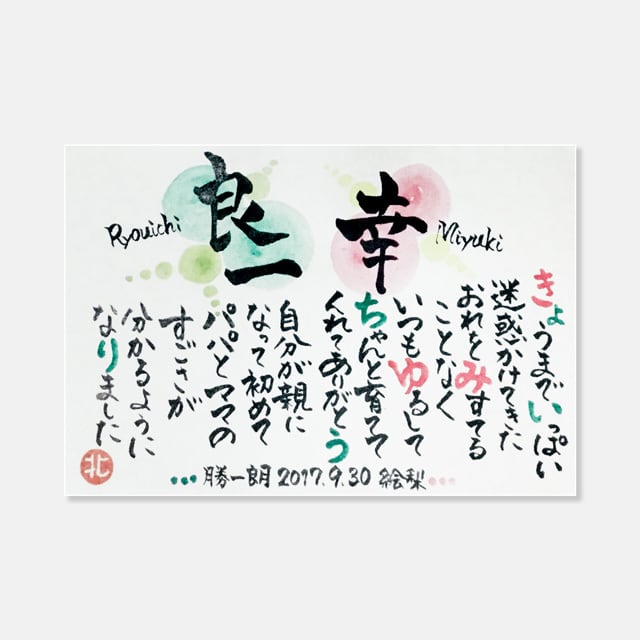 良一
Ryouichi
幸
Miyuki
きょうまでいっぱい
迷惑かけてきた
おれをみすてる
ことなく
いつもゆるして
ちゃんと育てて
くれてありがとう
自分が親に
なって初めて
パパとママの
すごさが
分かるように
なりました
北
勝一朗 2017.9.30 絵梨